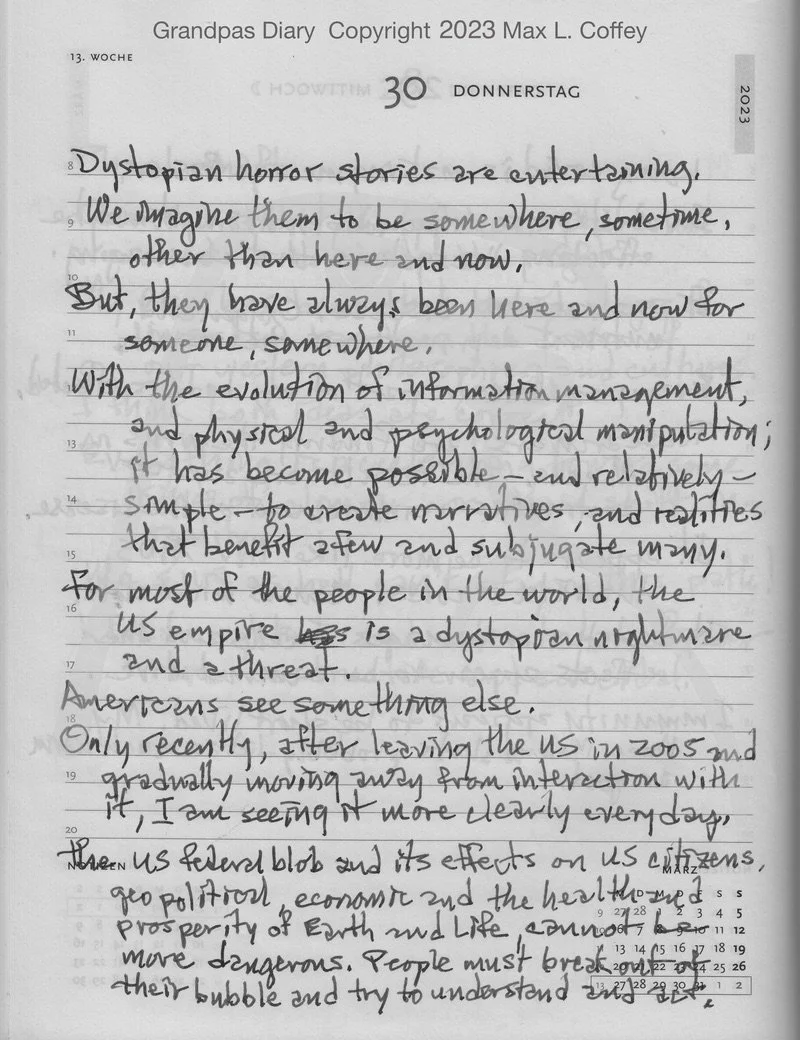 Grandpas Diary Copyright 2023 Max L. Coffey
13. WOCHE
30 DONNERSTAG
2023
8 Dystopian horror stories are entertaining.
9 We imagine them to be somewhere, sometime,
other than here and now.
10
But, they have always been here and now for
11 someone, somewhere.
With the evolution of information management,
and physical and psychological manipulation;
13 it has become possible – and relatively –
14 simple – to create narratives, and realities
15 that benefit a few and subjugate many.
For most of the people in the world, the
16 US empire is a dystopian nightmare
17 and a threat.
Americans see something else.
18
Only recently, after leaving the US in 2005 and
19 gradually moving away from interaction with
it, I am seeing it more clearly every day.
20
The US federal blob and its effects on US citizens,
NOTIZEN
MÄRZ
geopolitical, economic and the health and
M D F S S
9 27 28 2 3 4 5
prosperity of Earth and Life, cannot be
6 7 9 10 11 12
more dangerous. People must break out of
13 14 15 16 17 18 19
22 24 25 26
their bubble and try to understand and act.
13 27 28 29 30 31 1 2